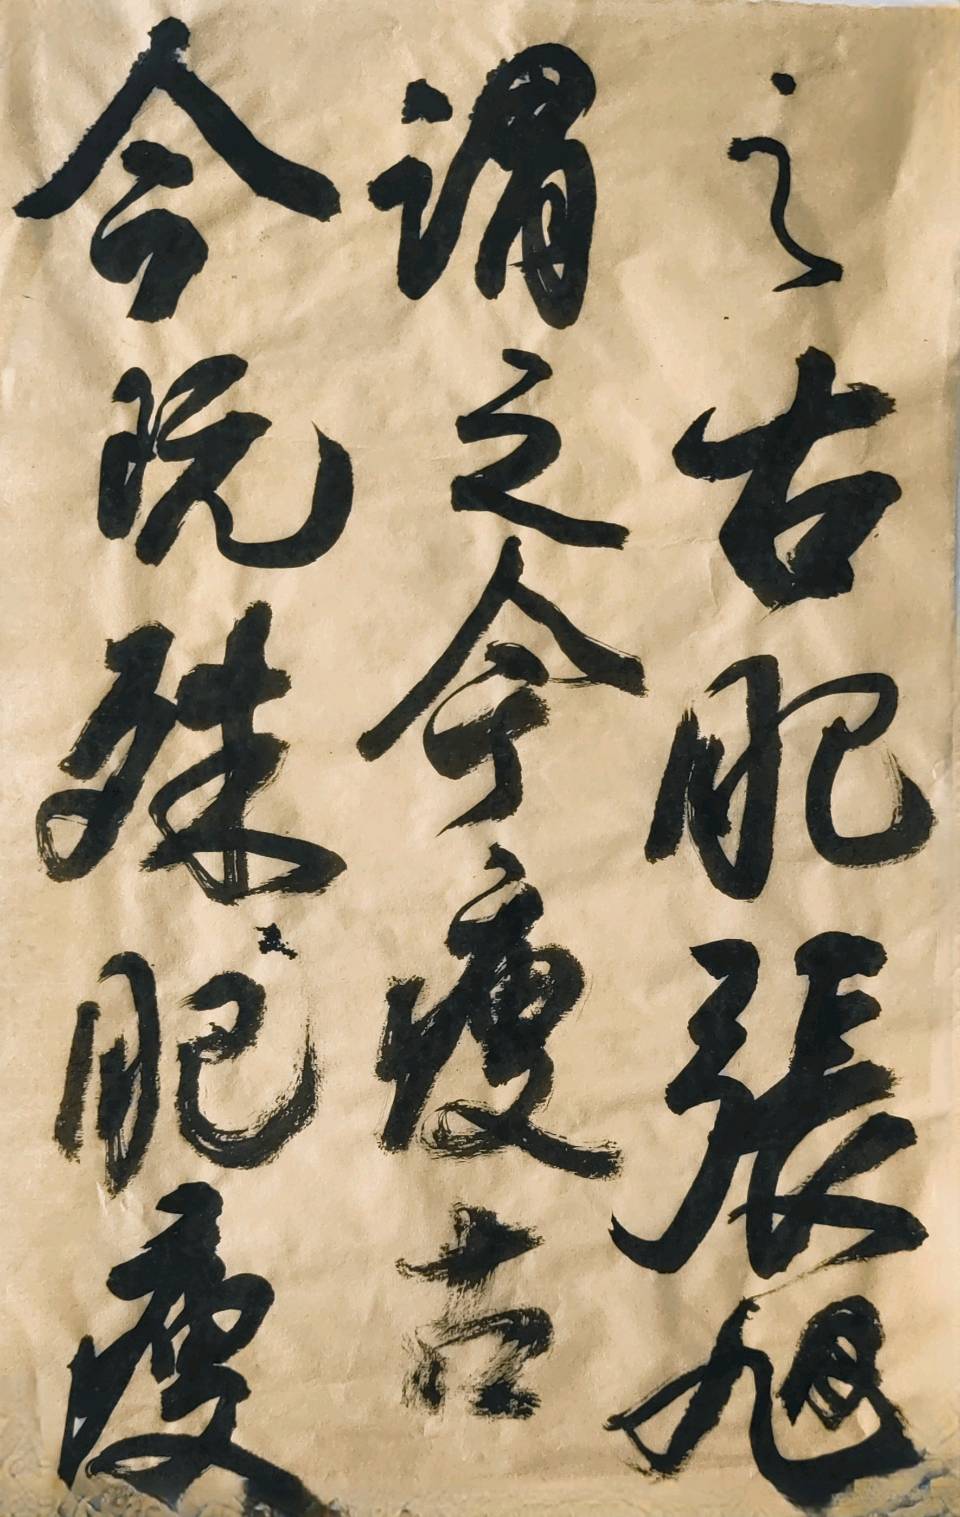 之古肥張旭
謂之今瘦古
今既殊肥瘦